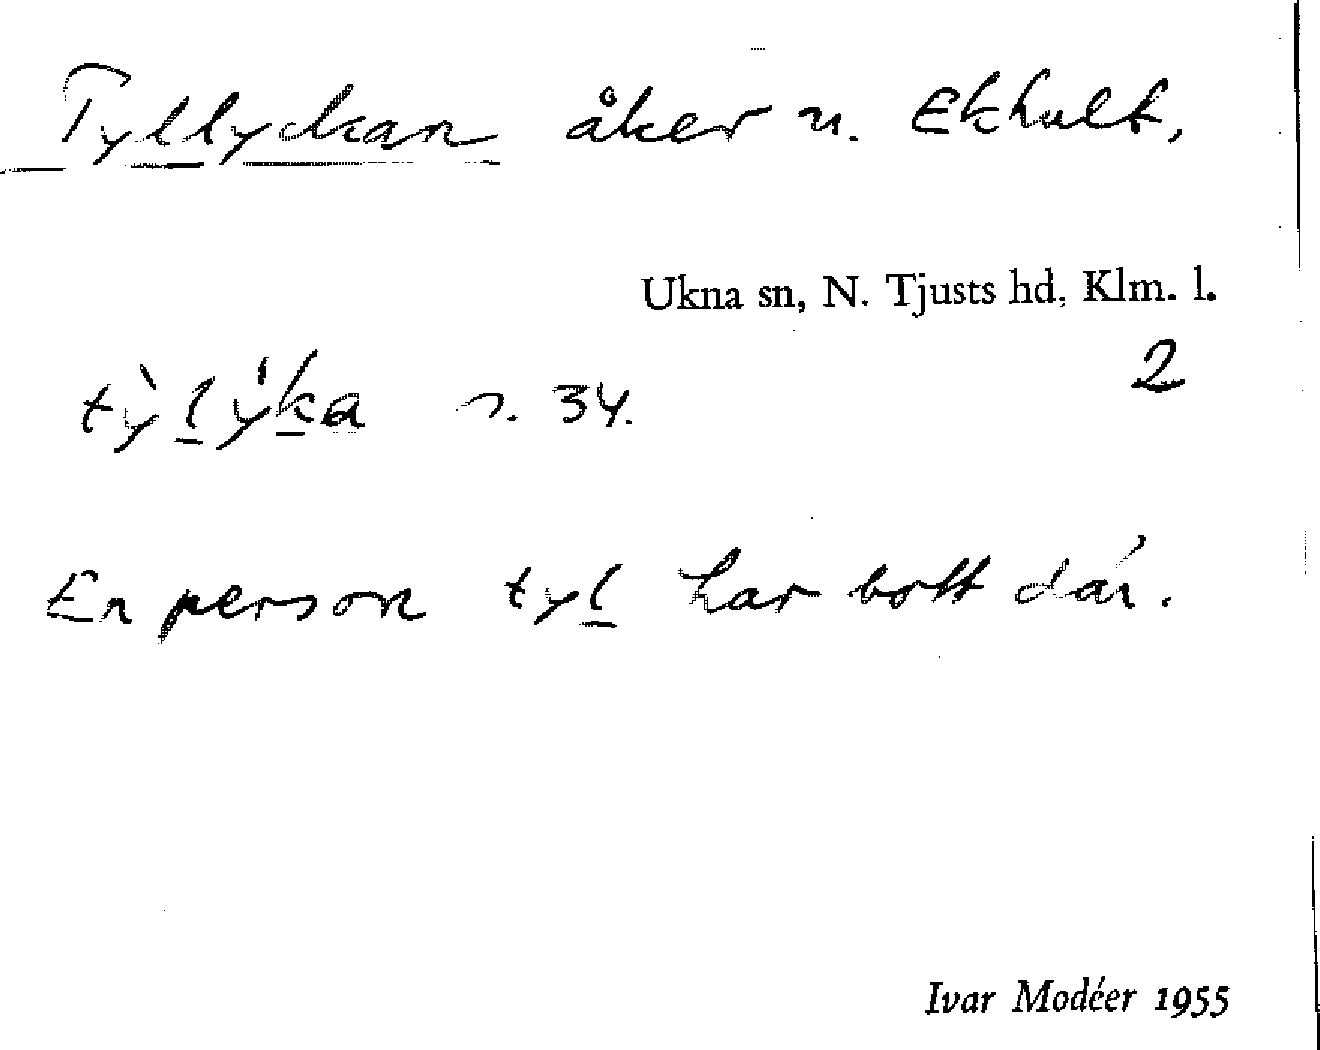 Tyllyckan åker u. Ekhult,
Ukna sn, N. Tjusts hd, Klm. l.
2
tỳl̲ýk̲a s. 34.
En person tyl̲ har bott där.
Ivar Modéer 1955